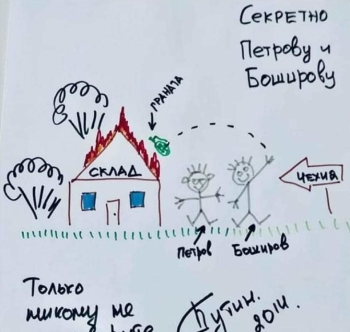 Секретно
Петрову и
Боширову
граната
склад
Чехия
Петров
Боширов
Только
никому не
Путин.
2014.